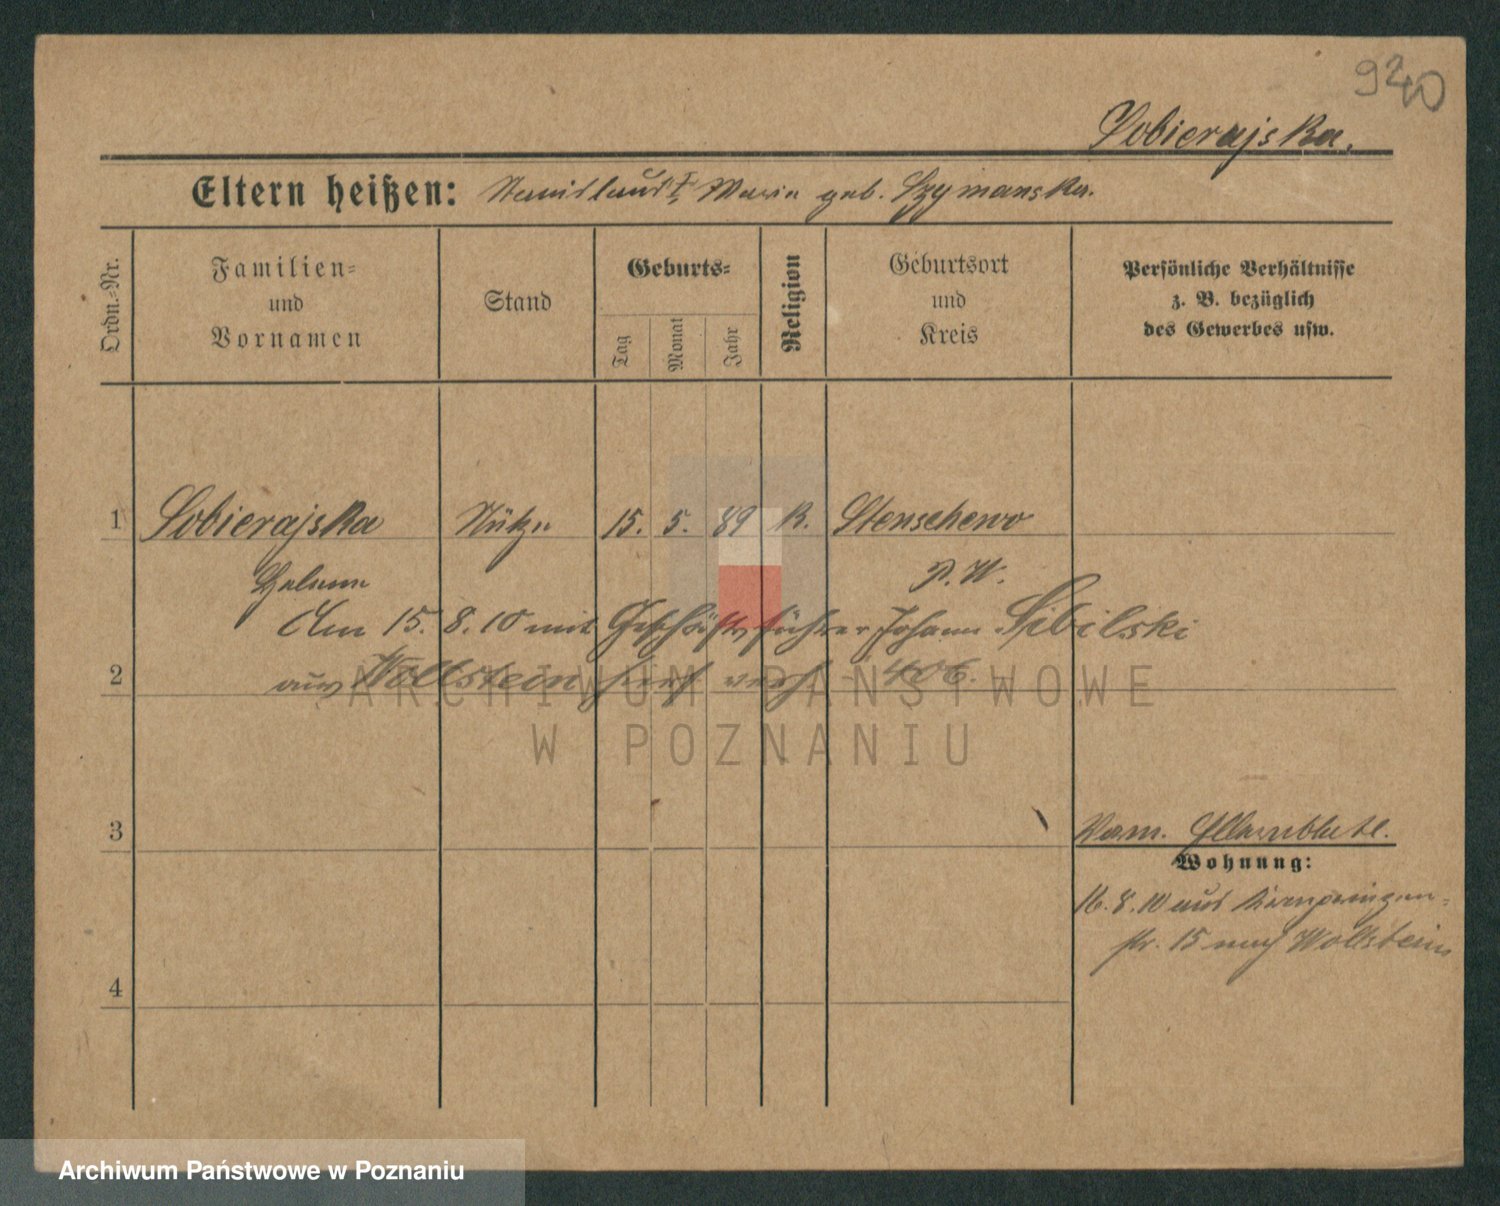 940
Sobierajska.
Eltern heißen: Stanislaus †, Maria geb. Szymanska.
Ordn.-Nr.
Familien- und Vornamen
Stand
Geburts-
Tag
Monat
Jahr
Religion
Geburtsort und Kreis
Persönliche Verhältnisse z. B. bezüglich des Gewerbes usw.
1 Sobierajska 15. 5. 89 K. Stenschewo
Helena P. W.
Am 15. 8. 10 mit Geschäftsführer Johann Sibilski
2 aus Wollstein hier verh - 406.
3
Wohnung:
16. 8. 10 aus
str. 15 nach Wollstein
4
ARCHIWUM PAŃSTWOWE
W POZNANIU
Archiwum Państwowe w Poznaniu